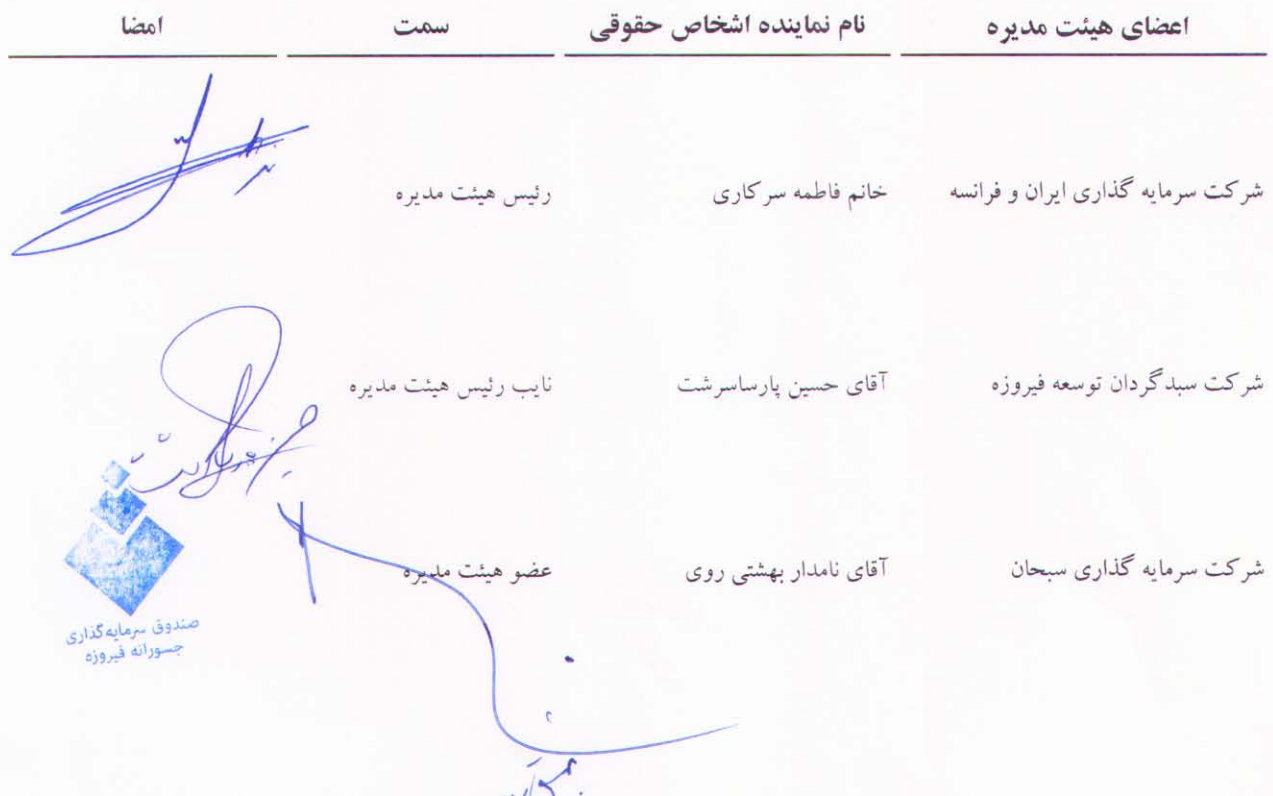 اعضای هیئت مدیره نام نماینده اشخاص حقوقی سمت امضا
شرکت سرمایه گذاری ایران و فرانسه خانم فاطمه سرکاری رئیس هیئت مدیره
شرکت سبدگردان توسعه فیروزه آقای حسین پارساسرشت نایب رئیس هیئت مدیره
شرکت سرمایه گذاری سبحان آقای نامدار بهشتی روی عضو هیئت مدیره
صندوق سرمایه‌گذاری
جسورانه فیروزه